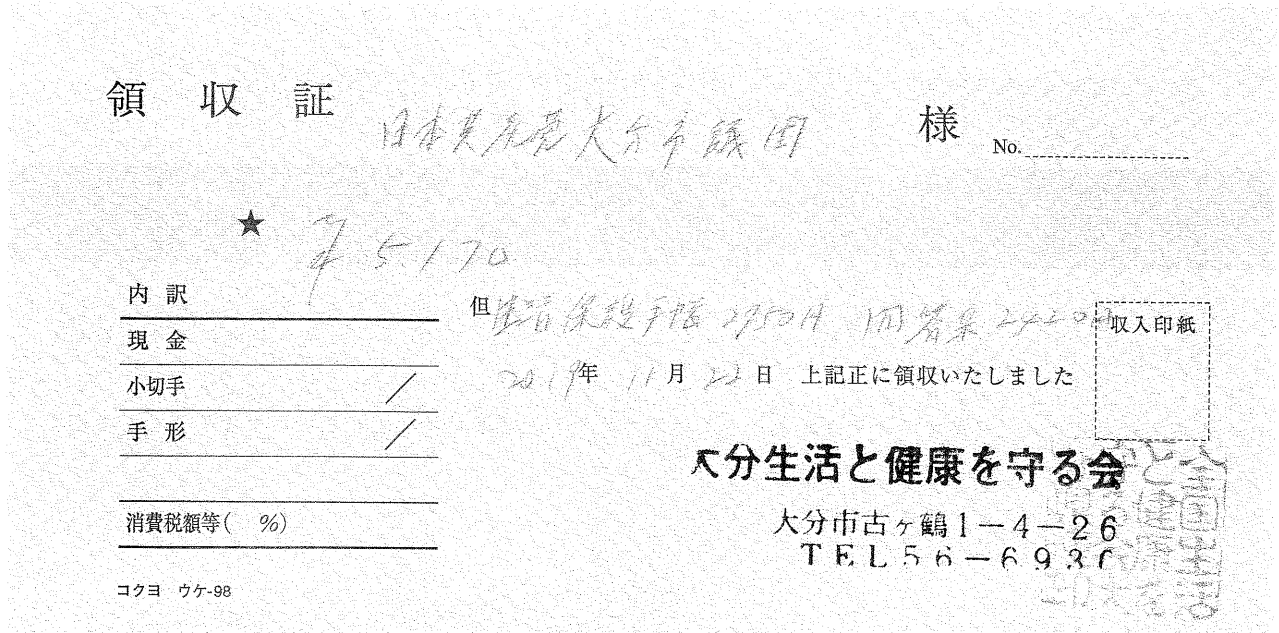 領収証 日本共産党大分市議団 様 No.
★ ¥5,170
内訳
現金
小切手 /
手形 /
消費税額等( %)
コクヨ ウケ-98
但 生活保護手帳 2950円 問答集 2220円
収入印紙
2019年 11月 22日 上記正に領収いたしました
大分生活と健康を守る会
大分市古ヶ鶴1-4-26
TEL56-693